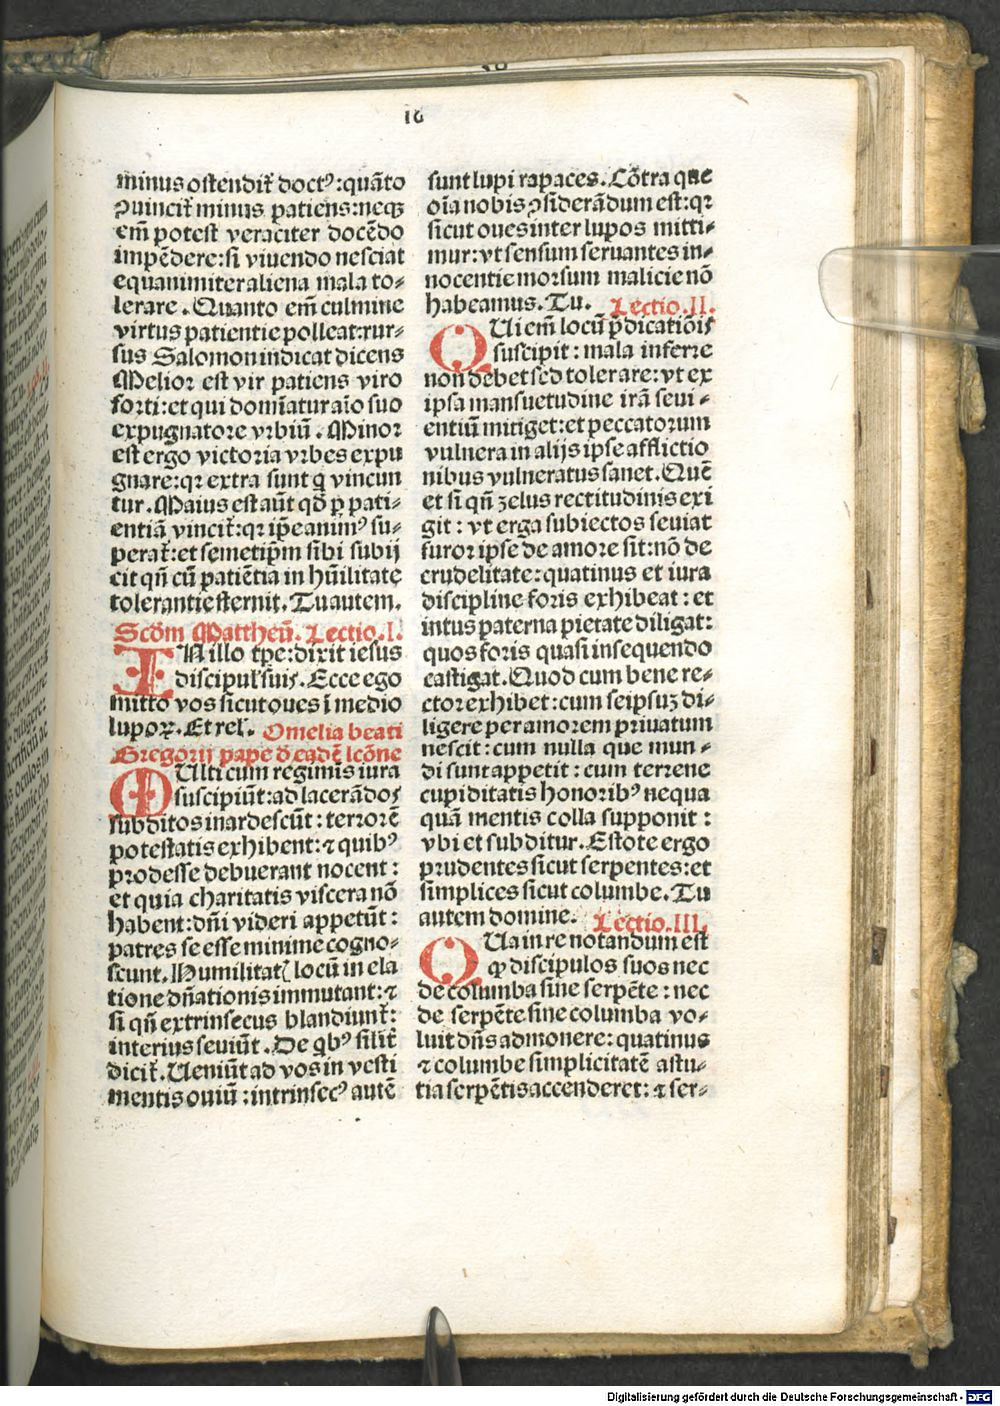 18
minus ostendit᷑ doctꝰ: quãto
ꝯuincit᷑ minus patiens: neqꝫ
em̃ potest veraciter docẽdo
impẽdere: si viuendo nesciat
equanimiter aliena mala to-
lerare. Quanto em̃ culmine
virtus patientie polleat: rur-
sus Salomon indicat dicens
Melior est vir patiens viro
forti: et qui domĩatur aĩo suo
expugnatore vrbiũ. Minor
est ergo victoria vrbes expu
gnare: qꝛ extra sunt q̃ vincun
tur. Maius est aũt qd̃ ꝑ pati-
entiã vincit᷑: qꝛ ip̃e animꝰ su-
perat᷑: et semetip̃m sibi subij
cit qñ cũ patiẽtia in hũilitate
tolerantie sternit. Tu autem.
Scd̃m Mattheũ. Lectio.I.
IN illo tp̃e: dixit iesus
discipul' suis. Ecce ego
mitto vos sicut oues ĩ medio
lupoꝝ. Et rel'. Omelia beati
Gregorij pape d̃ eadẽ lcõne
MUlti cum regiminis iura
suscipiũt: ad lacerãdos
subditos inardescũt: terrorẽ
potestatis exhibent: ⁊ quibꝰ
prodesse debuerant nocent:
et quia charitatis viscera nõ
habent: dñi videri appetũt:
patres se esse minime cogno-
scunt. Humilitatꝭ locũ in ela
tione dñationis immutant: ⁊
si qñ extrinsecus blandiunt᷑:
interius seuiũt. De qbꝰ silit᷑
dicit᷑. Ueniũt ad vos in vesti
mentis ouiũ: intrinsecꝰ autẽ
sunt lupi rapaces. Cõtra que
oĩa nobis ꝯsiderãdum est: qꝛ
sicut oues inter lupos mitti-
mur: vt sensum seruantes in-
nocentie morsum malicie nõ
habeamus. Tu. Lectio.II.
QUi em̃ locũ p̃dicatiõis
suscipit: mala inferre
non debet sed tolerare: vt ex
ipsa mansuetudine irã seui-
entiũ mitiget: et peccatorum
vulnera in alijs ipse afflictio
nibus vulneratus sanet. Quẽ
et si qñ zelus rectitudinis exi
git: vt erga subiectos seuiat
furor ipse de amore sit: nõ de
crudelitate: quatinus et iura
discipline foris exhibeat: et
intus paterna pietate diligat:
quos foris quasi insequendo
castigat. Quod cum bene re-
ctor exhibet: cum seipsuꝫ di-
ligere per amorem priuatum
nescit: cum nulla que mun-
di sunt appetit: cum terrene
cupiditatis honoribꝰ nequa
quã mentis colla supponit:
vbi et subditur. Estote ergo
prudentes sicut serpentes: et
simplices sicut columbe. Tu
autem domine. Lectio.III.
QUa in re notandum est
ꝙ discipulos suos nec
de columba sine serpẽte: nec
de serpẽte sine columba vo-
luit dñs admonere: quatinus
⁊ columbe simplicitatẽ astu-
tia serpẽtis accenderet: ⁊ ser-
Digitalisierung gefördert durch die Deutsche Forschungsgemeinschaft - DFG